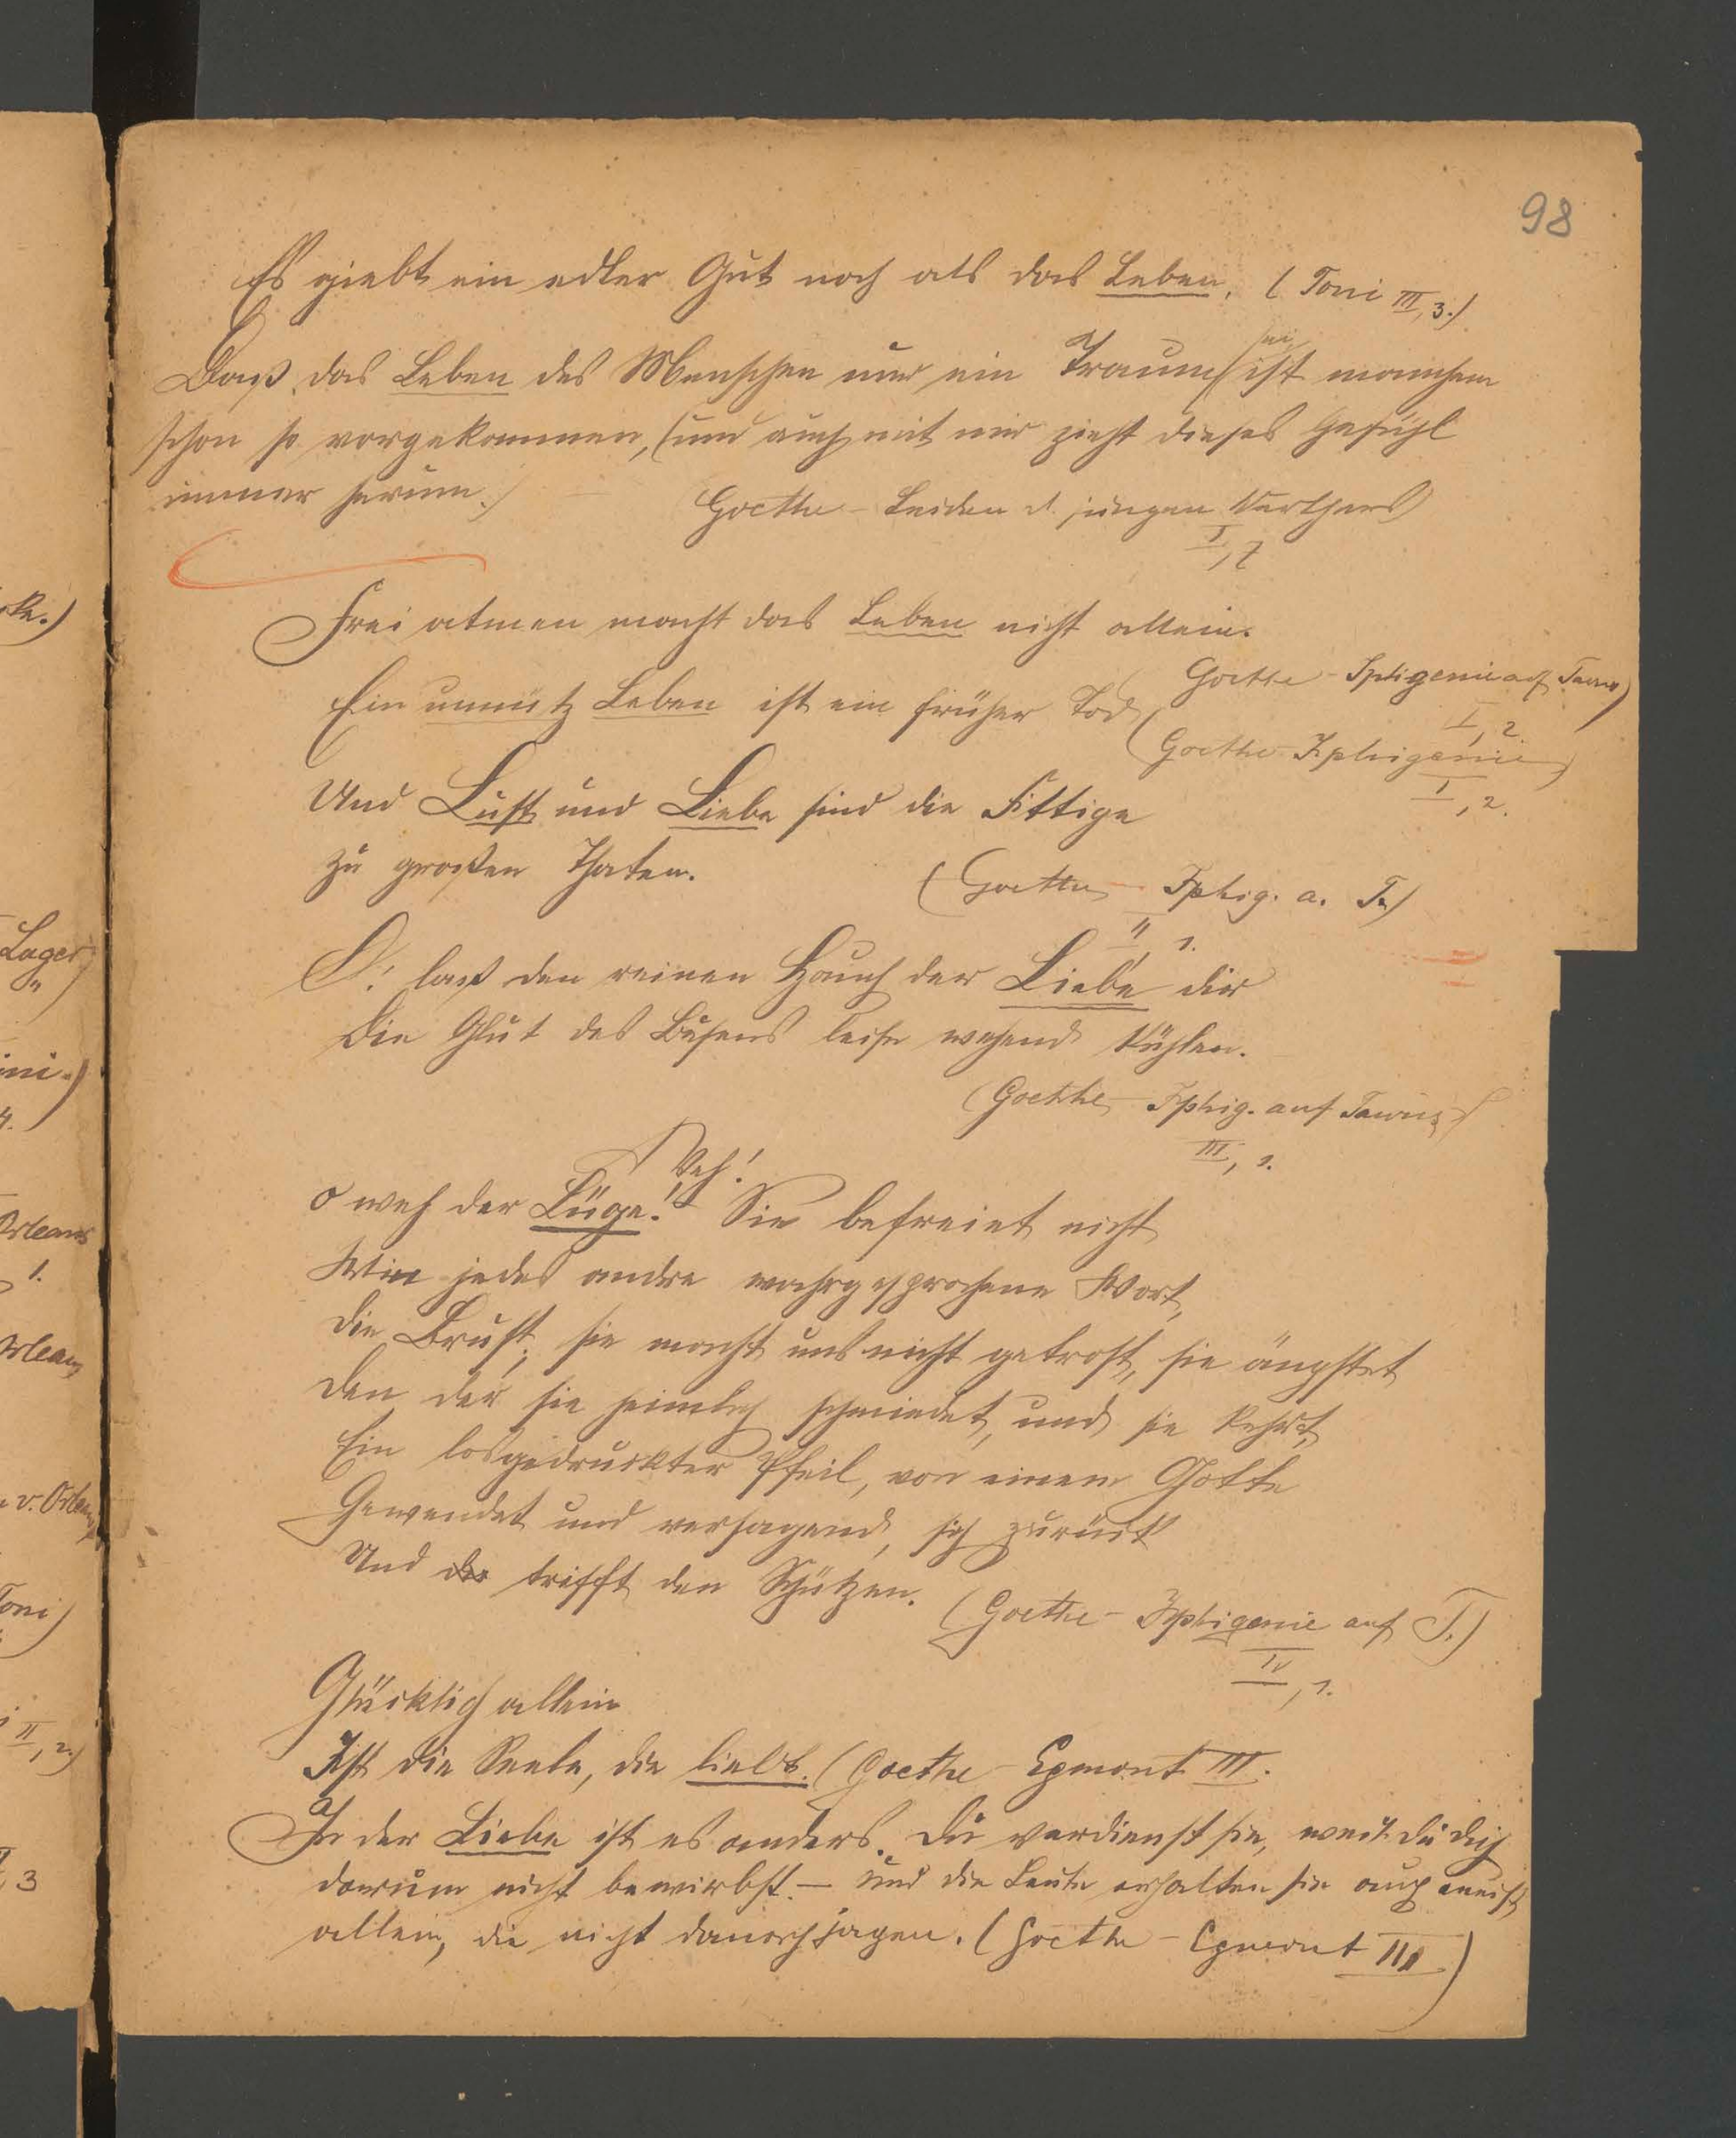 98
Es giebt ein edler Gut noch als das Leben. (Toni III, 3.)
sei
Daß das Leben des Menschen nur ein Traum ist manchem
schon so vorgekommen, (und auch mit mir zieht dieses Gefühl
immer herum.)
Goethe - Leiden d. jungen Werthers)
I, 7
Frei atmen macht das Leben nicht allein.
(Goethe - Iphigenie auf Tauris)
I, 2.
Ein unnütz Leben ist ein früher Tod
(Goethe Iphigenie)
I, 2.
Und Lust und Liebe sind die Fittige
zu großen Thaten.
(Goethe - Iphig. a. T.)
II, 1.
O! laß den reinen Hauch der Liebe dir
Die Glut des Busens leise wehend kühlen.
(Goethe - Iphig. auf Tauris)
III, 1.
Weh!
O weh der Lüge! Sie befreiet nicht
Wie jedes andre wahrgesprochene Wort,
Die Brust; sie macht uns nicht getrost, sie ängstet
Den der sie heimlich schmiedet, und sie kehrt,
Ein losgedruckter Pfeil, von einem Gotte
Gewendet und versagend, sich zurück
Und der trifft den Schützen.
(Goethe - Iphigenie auf T.)
IV, 1.
Glücklich allein
Ist die Seele, die liebt. (Goethe - Egmont III.
In der Liebe ist es anders. Du verdienst sie, weil du dich
darum nicht bewirbst. - und die Leute erhalten sie auch meist
allein, die nicht darnach jagen. (Goethe - Egmont III)
ke.)
Lager
ini.)
4.
Orleans
1.
Orleans
v. Orleans
Toni)
II, 2.)
3